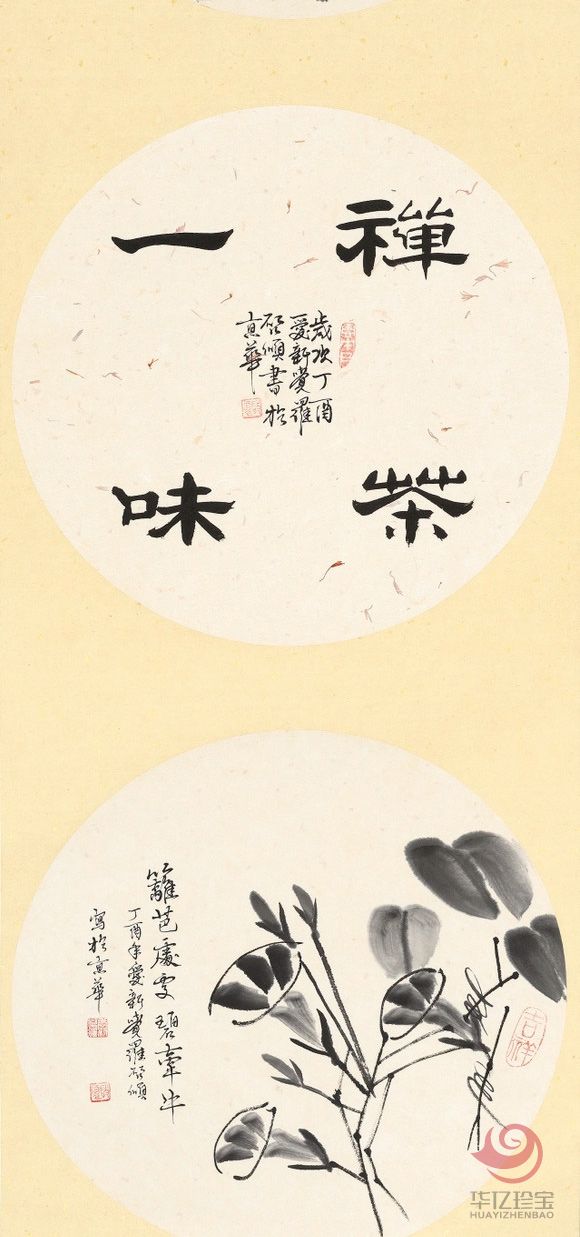 禪茶
一味
歲次丁酉
愛新覺羅
啟書於
京華
籬芭處碧牽牛
丁酉年愛新覺羅啟
寫於京華
吉祥
华亿珍宝
HUAYIZHENBAO